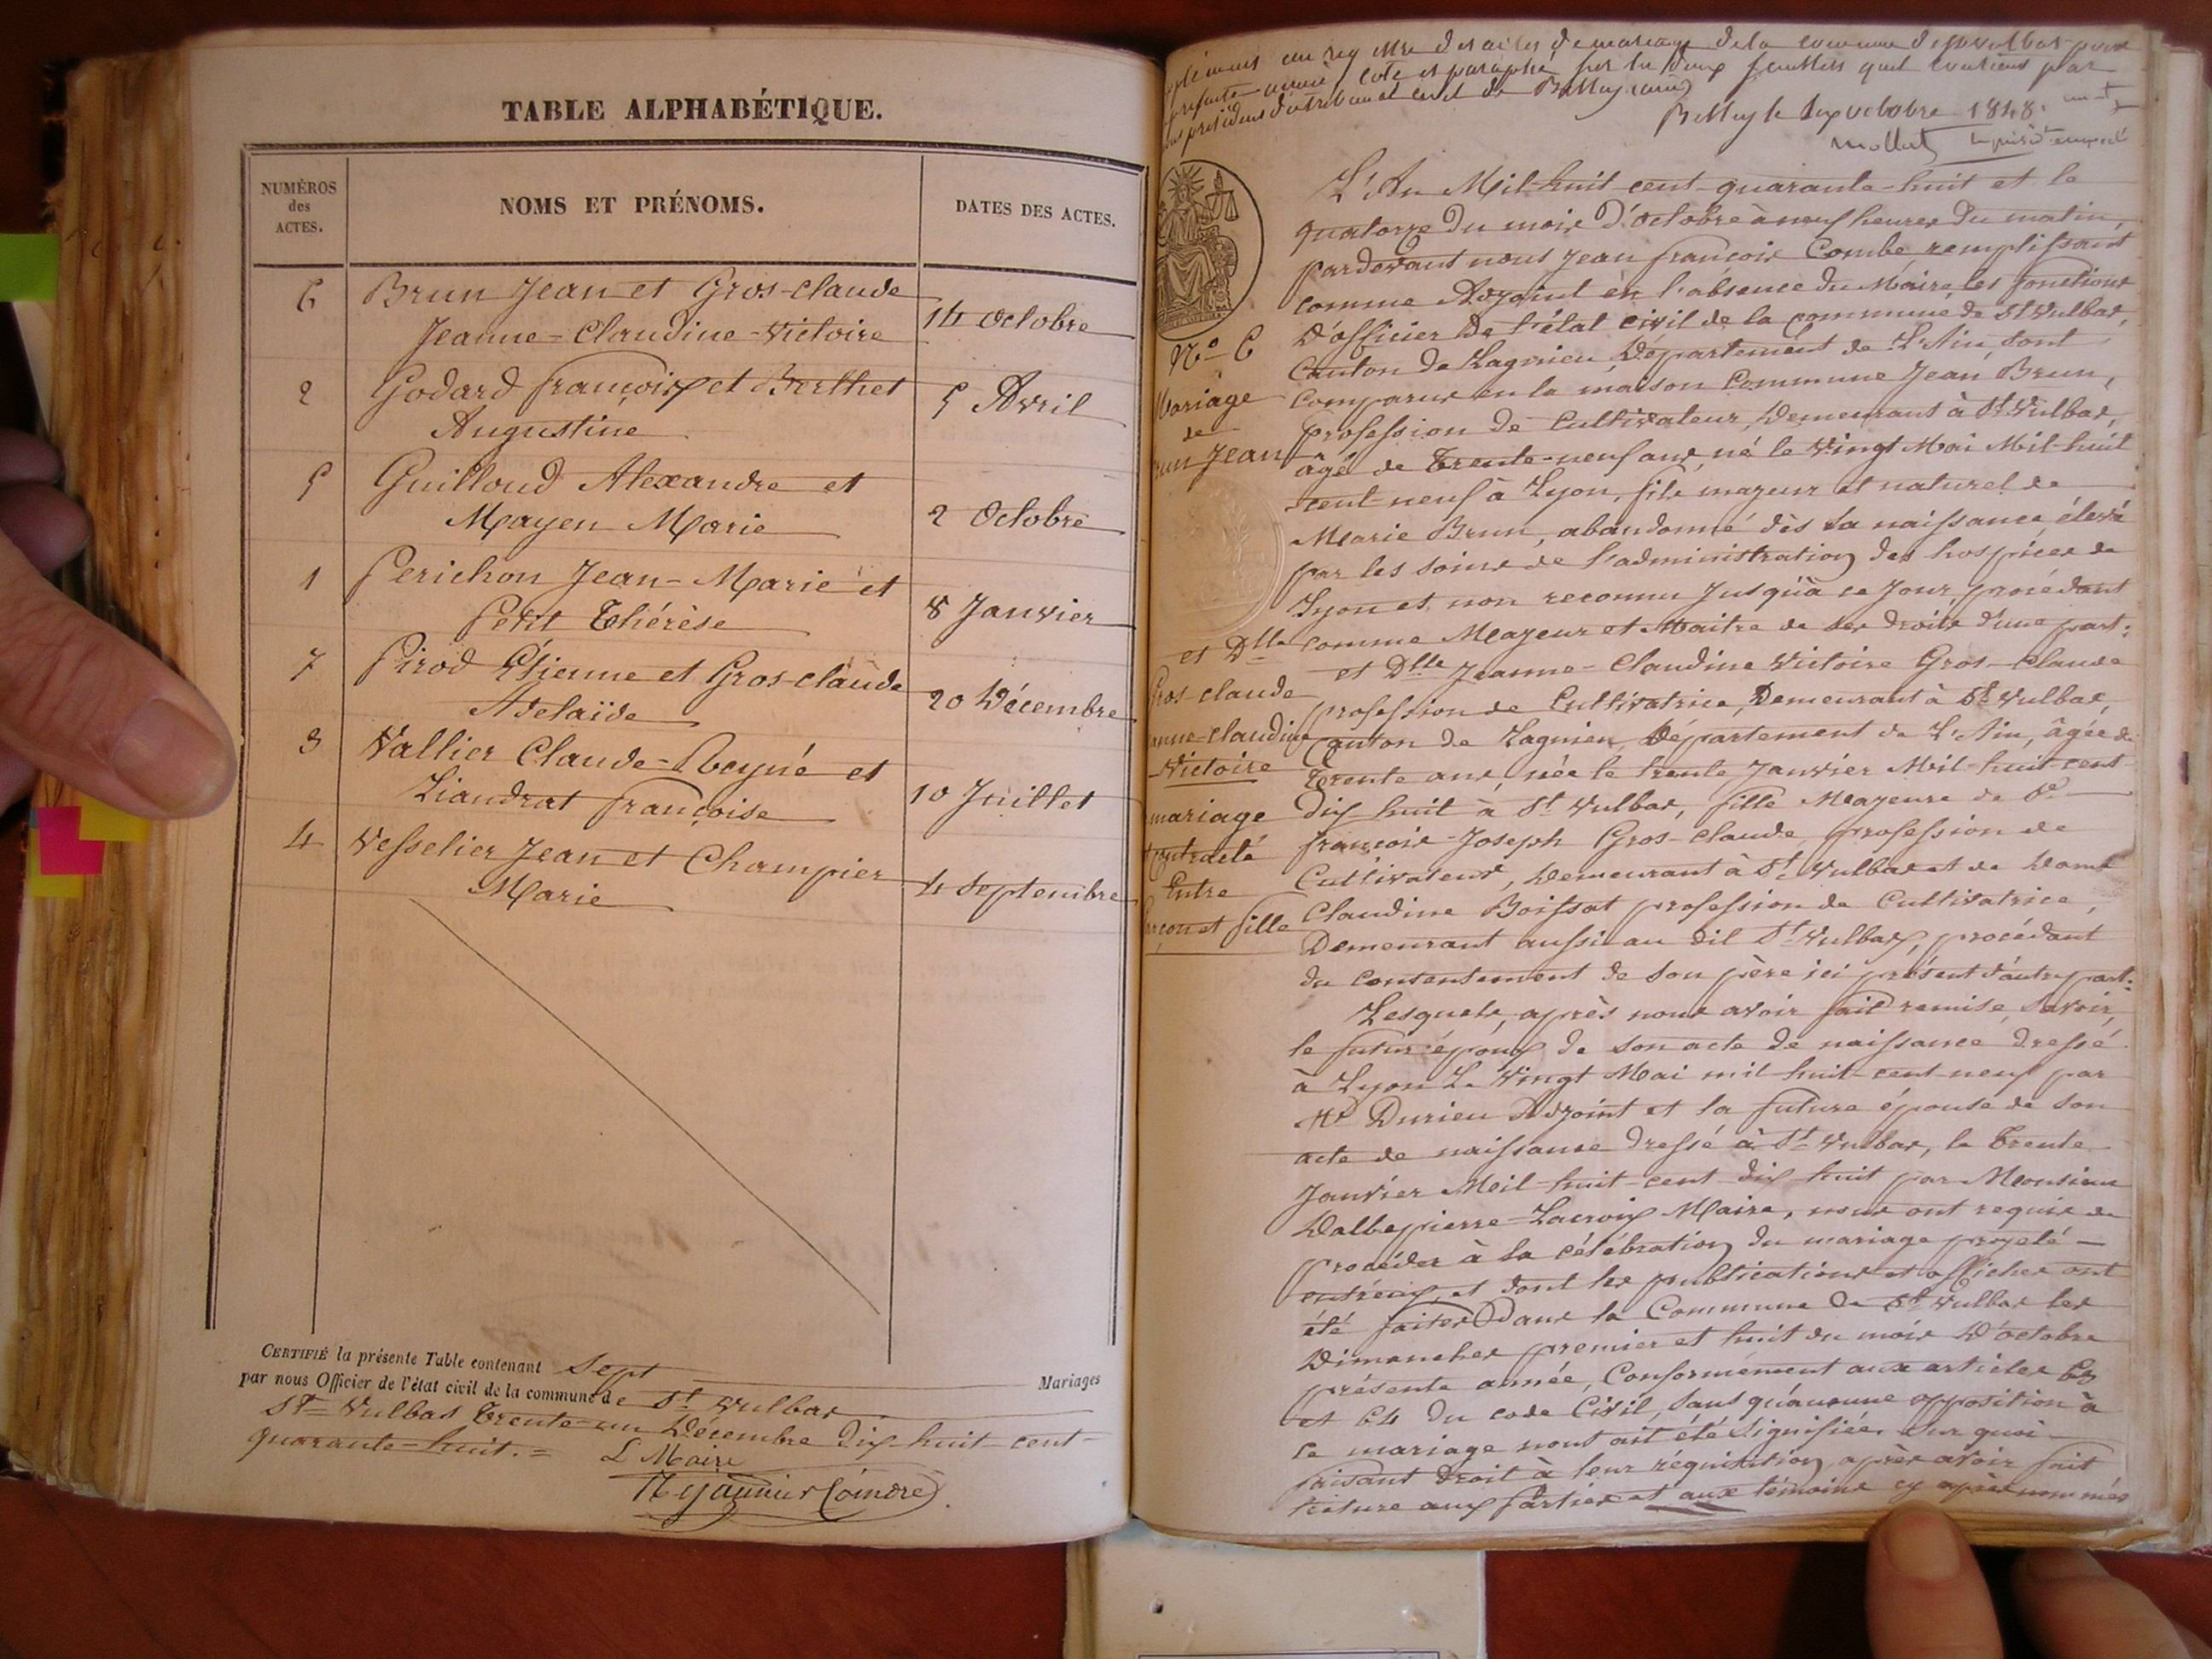 TABLE ALPHABÉTIQUE.
NUMÉROS des ACTES.
NOMS ET PRÉNOMS.
DATES DES ACTES.
6 Brun Jean et Gros-claude
Jeanne-Claudine-Victoire 14 Octobre
2 Godard françois et Berthet
Augustine 5 Avril
5 Guilloud Alexandre et
Mayen Marie 2 Octobre
1 Perichon Jean-Marie et
Petit Thérèse 8 Janvier
7 Pirod Étienne et Gros-claude
Adelaïde 20 Décembre
3 Vallier Claude- et
Liandrat françoise 10 Juillet
4 Vesselier Jean et Champier
Marie 4 Septembre
CERTIFIÉ la présente Table contenant Sept Mariages
par nous Officier de l'état civil de la commune de St Vulbas
St Vulbas Trente-un Décembre Dix-huit-cent-
quarante-huit. =
L Maire
au registre des actes de mariage de la commune de
présente année, coté et paraphé sur les deux feuillets quil contient par
président du tribunal civil de Belley (ain)
Belley le dix octobre 1848.
Mollet
L'An Mil-huit-cent-quarante-huit et le
quatorze du mois d'octobre à neuf heures du matin,
pardevant nous Jean françois Combe remplissant
comme Adjoint en l'absence du Maire, les fonctions
D'officier De l'état civil de la commune de St Vulbas,
Canton de Lagnieu, Département de L'Ain, sont
Comparus en la maison Commune Jean Brun,
profession de Cultivateur, Demeurant à St Vulbas,
âgé de Trente-neuf ans, né le Vingt Mai Mil-huit
cent-neuf à Lyon, fils majeur et naturel de
Marie Brun, abandonné dès sa naissance élevé
par les soins de l'administration des hospices de
Lyon et non reconnu jusqu'à ce jour, procédant
comme Majeur et Maitre de ses droits d'une part:
et Dlle Jeanne-Claudine Victoire Gros-Claude
profession de Cultivatrice, Demeurant à St Vulbas,
Canton de Lagnieu, Département de L'Ain, âgée de
Trente ans, née le trente Janvier Mil-huit cent-
dix huit à St Vulbas, fille Majeure de Sr
françois-Joseph Gros-Claude, profession de
Cultivateur, Demeurant à St Vulbas et de Dame
Claudine Boissat profession de Cultivatrice,
Demeurant aussi au dit St Vulbas, procédant
du consentement de son père ici présent d'autre part:
Lesquels, après nous avoir fait remise, Savoir,
le futur époux de son acte de naissance dressé
à Lyon Le Vingt Mai mil-huit-cent-neuf par
Mr Durieu Adjoint et la future épouse de son
acte de naissance dressé à St Vulbas, le Trente
Janvier Mil-huit-cent dix huit par Monsieur
Dalbepierre-Lacroix Maire, nous ont requis de
procéder à la célébration du mariage projeté
entr'eux, et dont les publications et affiches ont
été faites Dans la Commune de St Vulbas les
Dimanches premier et huit du mois D'octobre
présente année, Conformément aux articles 63
et 64 du code Civil, Sans qu'aucune opposition à
ce mariage nous ait été Signifiée, Sur quoi
faisant Droit à leur réquisition, après avoir fait
lecture aux parties et aux témoins cy après nommés
No 6
Mariage
de
Brun Jean
et Dlle
Gros claude
Jeanne-claudine
Victoire
mariage
Contracté
Entre
Garçon et fille